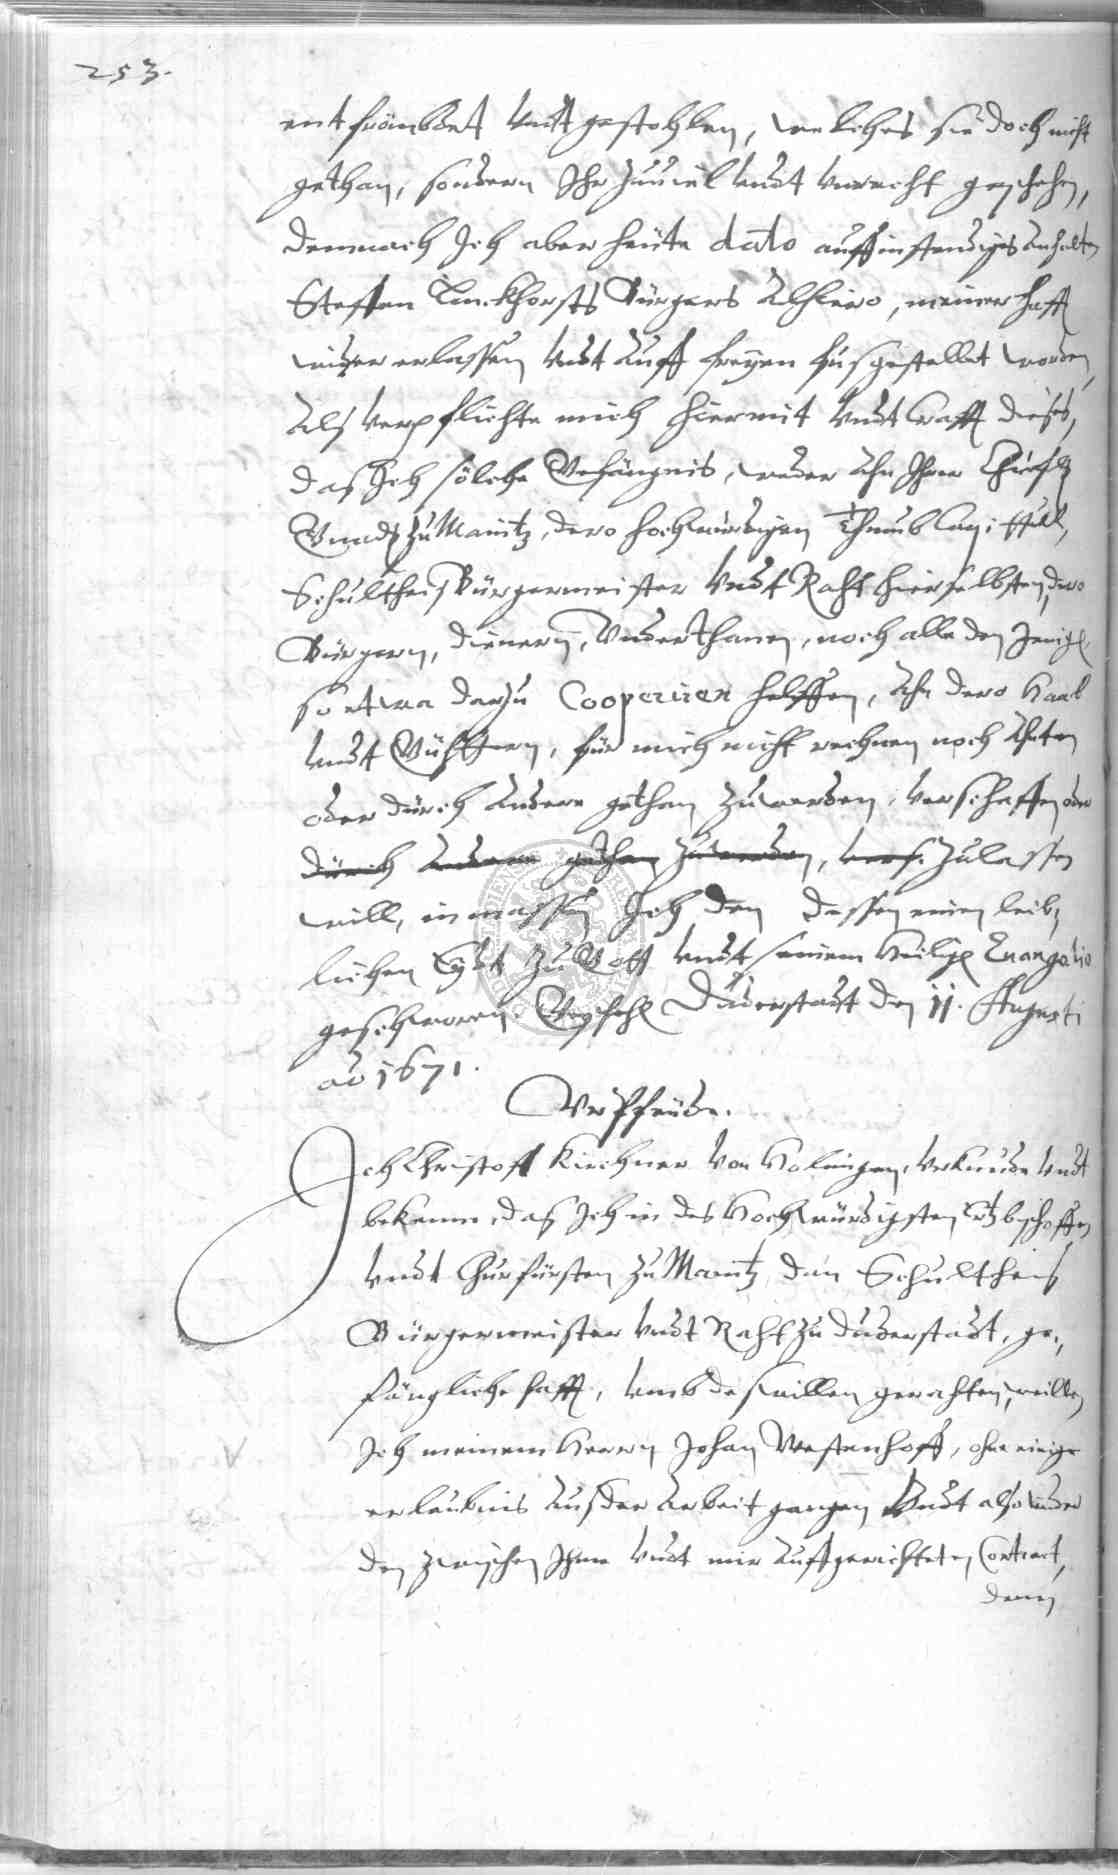 253.
entfrömbdet undt gestohlen, welches sie doch nicht
gethan, sondern Ihr zuviel undt unrecht geschehen,
demnach Ich aber heute dato auff instendiges anhalten
Steffen Bürgers alhiero, meiner hafft
wider erlassen undt auff freyen fus gestellet worden,
Als verpflichte mich hiermit undt Crafft dieses,
das Ich solche Gefängnis, weder ahn Ihrer Churfl
Gnadt zu Maintz, dero hochwürdigen Thumb Capittull,
Schultheis Bürgermeister undt Raht hierselbsten, dero
Bürgern, dienern, Underthanen, noch alle den Jenigen
so etwa darzu Cooperiren helffen, ahn dero Haab
undt Güettern, für mich nicht rechnen noch
oder durch andere gethan zuwerden, verschaffen oder
durch andere gethan zuwerden, vers. zulassen
will, inmassen Ich den dessen einen leib,
lichen Eydt zu Gott undt seinem heiligen Evangelio
geschworen. Geschehen Duderstadt den 11. Augusti
ao 1671.
Urpfeide.
Ich Christoff Kirchner von Holungen, Uhrkunde undt
bekenne, das Ich in des Hochwürdigsten Ertzbischoffen
undt Churfürsten zu Maintz, den Schultheis
Bürgermeister undt Raht zu Duderstadt, ge,
fängliche hafft, umb deswillen gerahten, weillen
Ich meinem Herrn Johan Westenhoff, ohne einige
erlaubnis aus der Arbeit gangen undt also wider
den zwischen Ihme undt mir auffgerichteten Contract,
denen